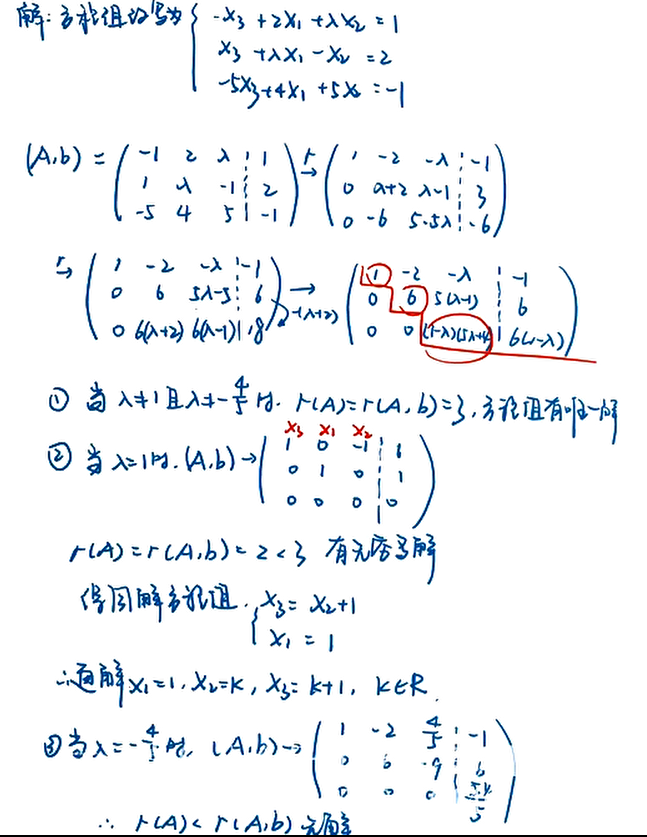 解:方程组改写为 { -x₃ + 2x₁ + λx₂ = 1
x₃ + λx₁ - x₂ = 2
-5x₃ + 4x₁ + 5x₂ = -1
(A,b) = ( -1 2 λ ¦ 1 ) r→ ( 1 -2 -λ ¦ -1 )
( 1 λ -1 ¦ 2 ) ( 0 λ+2 λ-1 ¦ 3 )
( -5 4 5 ¦ -1 ) ( 0 -6 5-5λ ¦ -6 )
r→ ( 1 -2 -λ ¦ -1 ) → ( 1 -2 -λ ¦ -1 )
( 0 6 5λ-5 ¦ 6 ) -(λ+2) ( 0 6 5(λ-1) ¦ 6 )
( 0 6(λ+2) 6(λ-1) ¦ 18 ) ( 0 0 (1-λ)(5λ+4) ¦ 6(1-λ) )
① 当 λ≠1 且 λ≠-4/5 时. r(A)=r(A,b)=3, 方程组有唯一解
x₃ x₁ x₂
② 当 λ=1时. (A,b) → ( 1 0 -1 ¦ 1 )
( 0 1 0 ¦ 1 )
( 0 0 0 ¦ 0 )
r(A)=r(A,b)=2<3 有无穷多解
得同解方程组. { x₃ = x₂+1
x₁ = 1
∴通解 x₁=1, x₂=k, x₃=k+1, k∈R.
③当 λ=-4/5 时, (A,b) → ( 1 -2 4/5 ¦ -1 )
( 0 6 -9 ¦ 6 )
( 0 0 0 ¦ 54/5 )
∴ r(A)<r(A,b) 无解